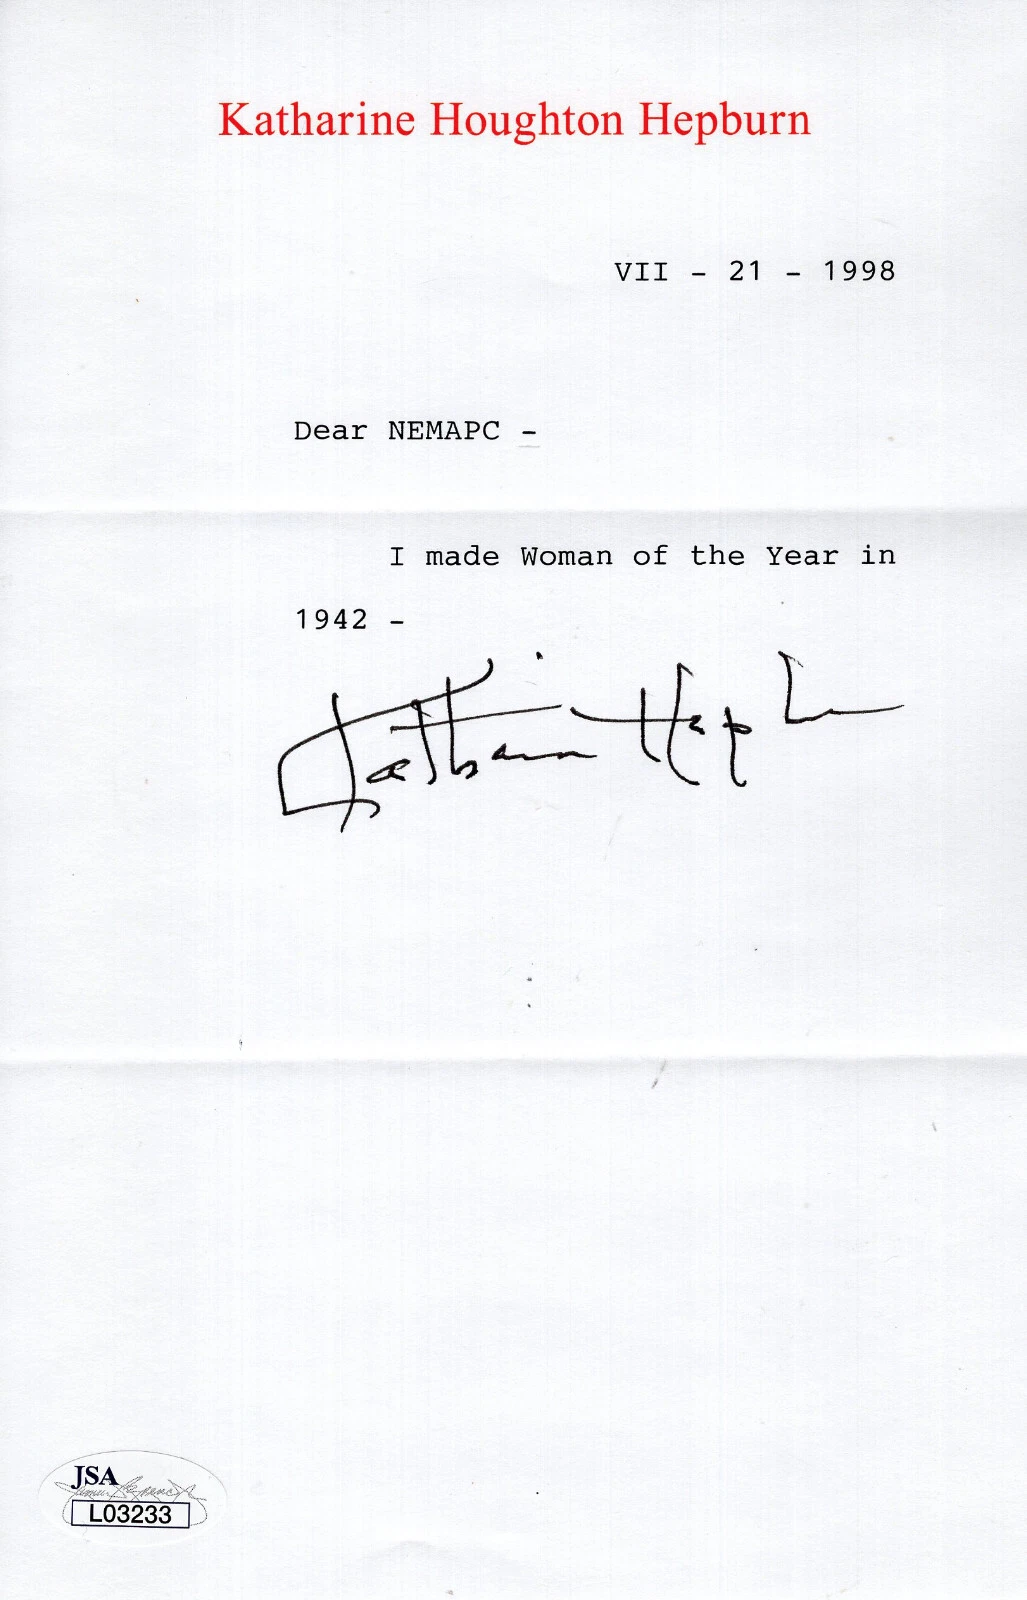 Katharine Houghton Hepburn
VII - 21 - 1998
Dear NEMAPC -
I made Woman of the Year in
1942 -
Katharine Hepburn
JSA
L03233